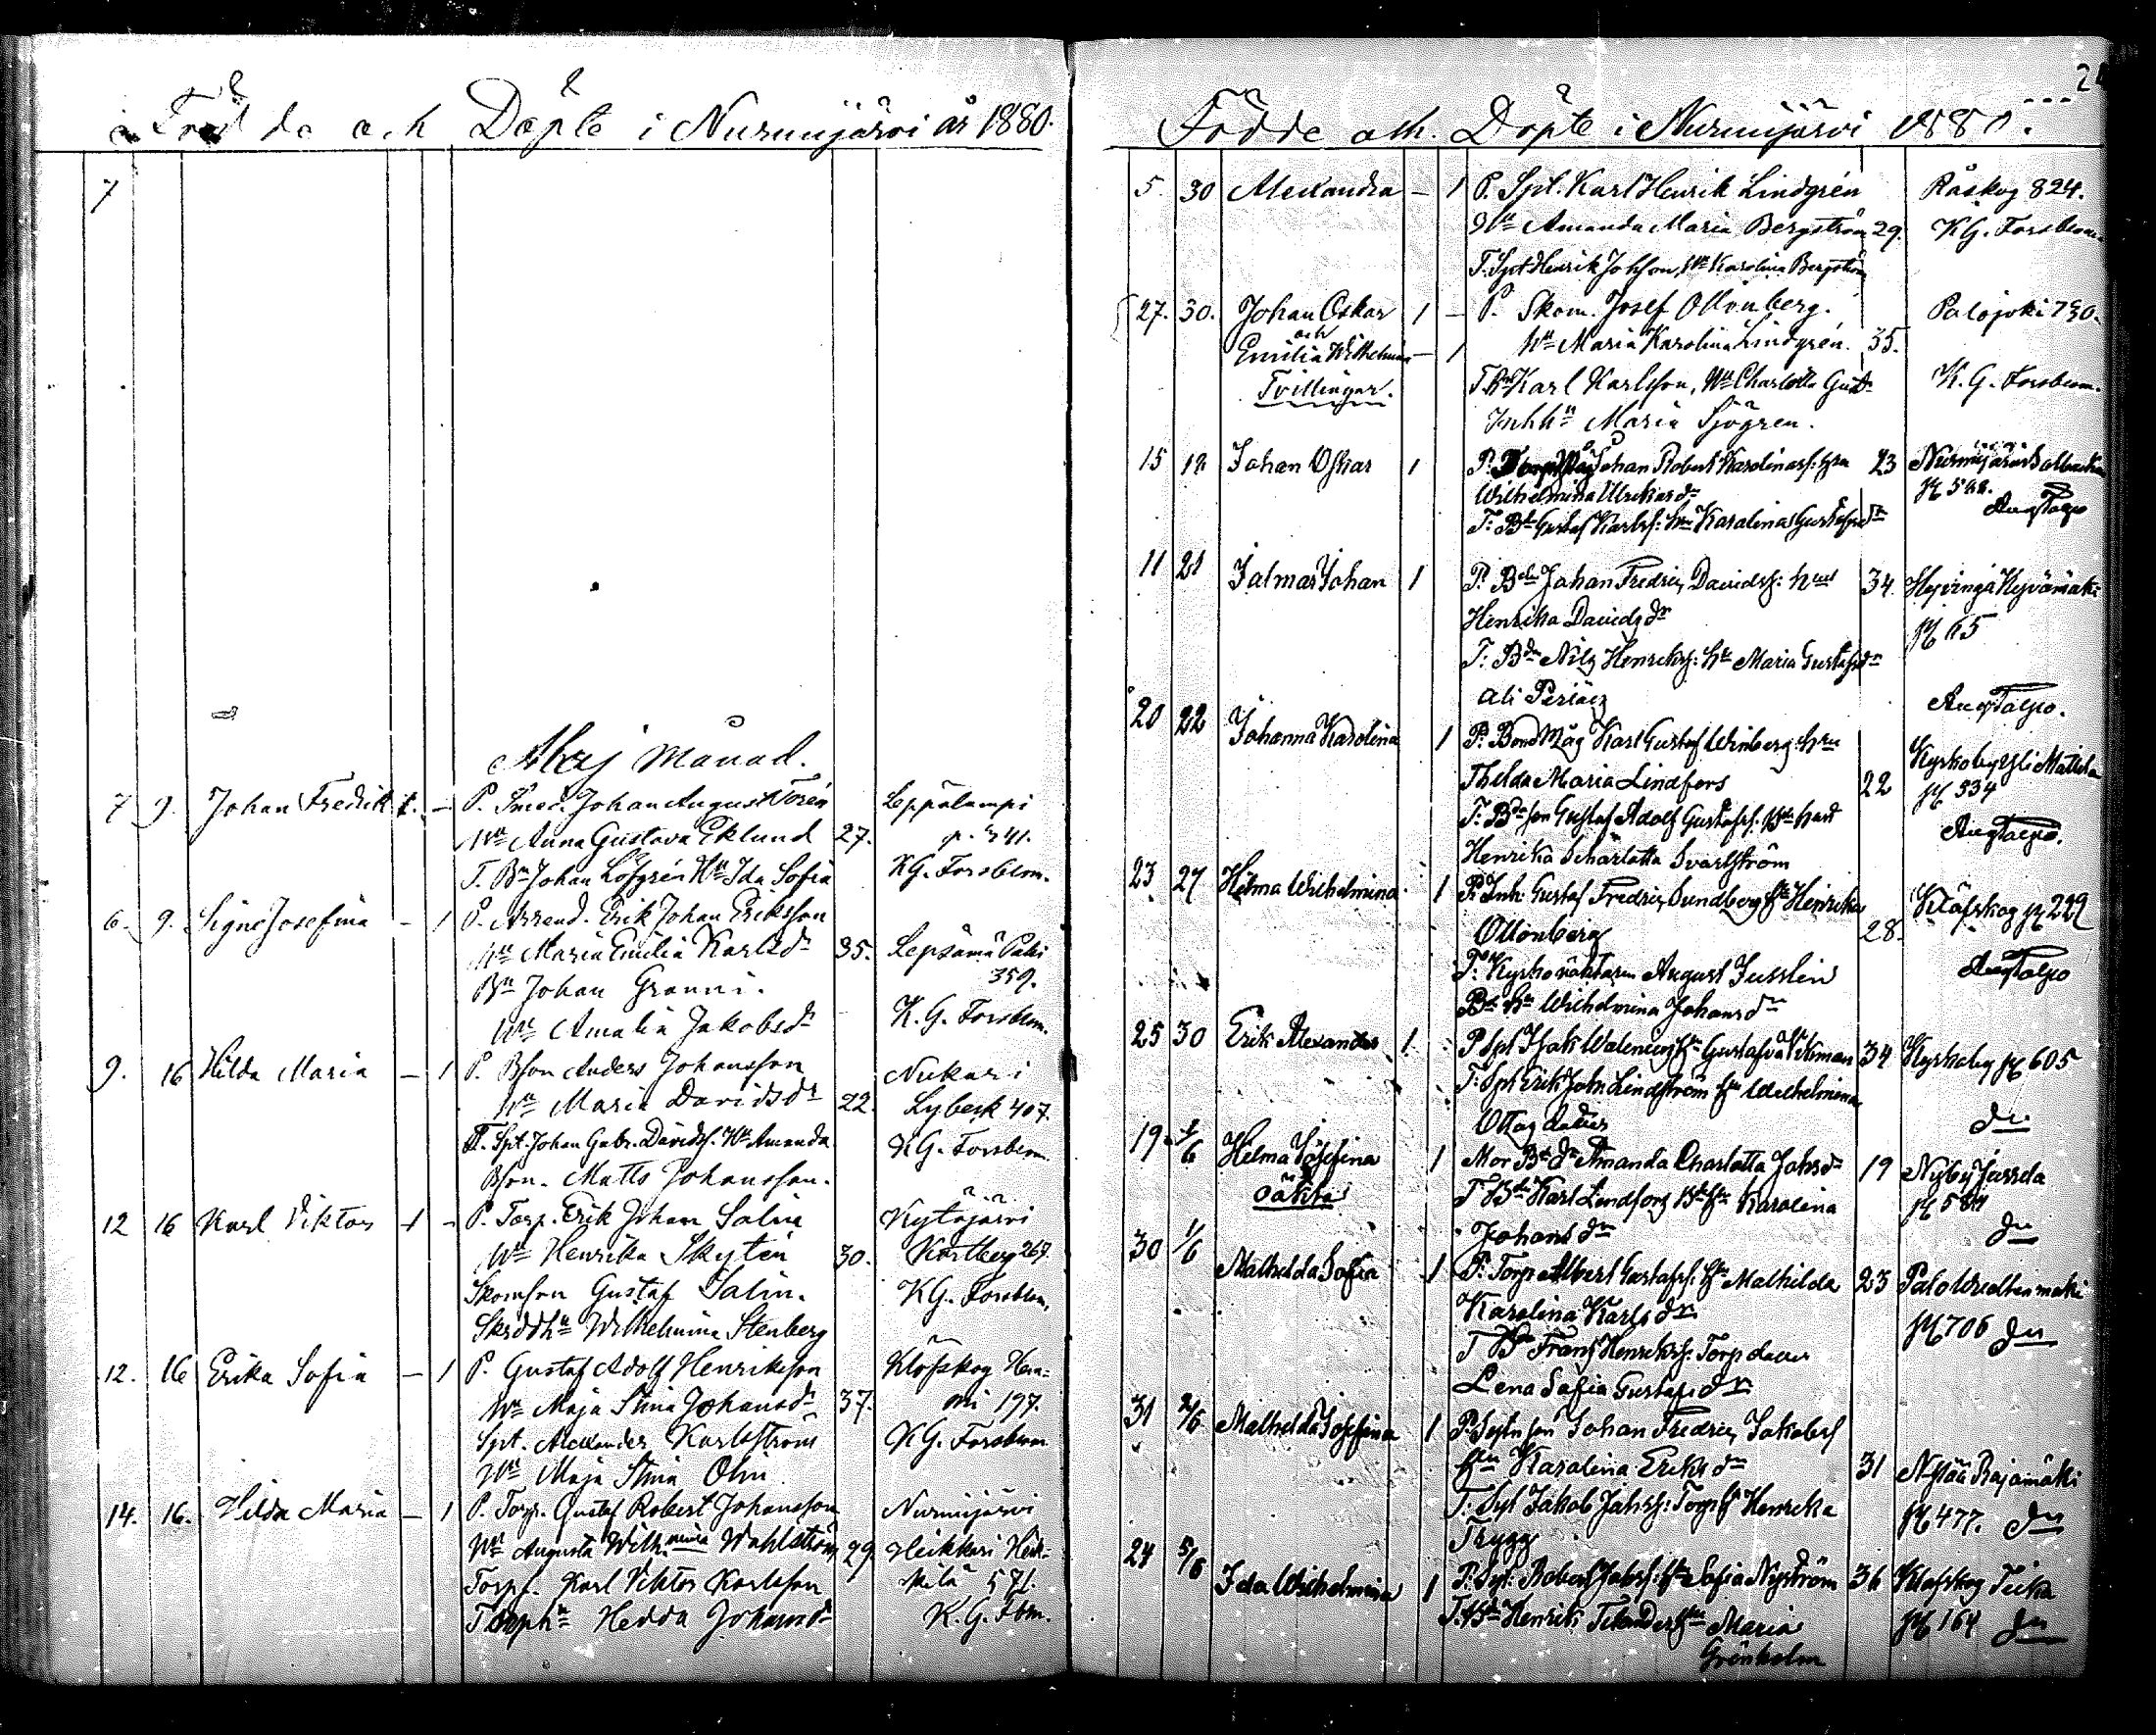 Födde och Döpte i Nurmijärvi år 1880.
7
Maj Månad.
7 9. Johan Fredrik 1. - P. Smed. Johan August Torén Leppälampi
Hu Anna Gustava Eklund 27. p. 341.
T. Bn Johan Löfgrén Hu Ida Sofia KG. Forsblom.
6. 9. Signe Josefina - 1 P. Arrend. Erik Johan Eriksson
Hu Maria Emilia Karlsdr 35. Lepsämä Palri
Bn Johan Granni. 359.
Hu Amalia Jakobsdr K. G. Forsblom.
9. 16 Hilda Maria - 1 P. Bson Anders Johansson Nukari
Hu Maria Davidsdr 22. Lybeck 407.
T. Spt. Johan Gabr. Davidss. Hu Amanda KG. Forsblom
Bson. Matts Johansson.
12 16 Karl Viktor 1 - P. Torp. Erik Johan Salin Kytäjärvi
Hu Henrika Skytén 30. Kortberg 267.
Skomson Gustaf Salin. KG. Forsblom.
Skrddhu Wilhelmina Stenberg
12. 16 Erika Sofia - 1 P. Gustaf Adolf Henriksson Klöfskog
Hu Maja Stina Johansdr 37. 197.
Spt. Alexander Karlström KG. Forsblom
Hu Maja Stina Olin
14. 16. Hilda Maria - 1 P. Torp. Gustaf Robert Johansson Nurmijärvi
Hu Augusta Wilhelmina Wahlström 29 Heikkari Heik-
Torpf. Karl Viktor Karlsson kilä 571.
Torphu Hedda Johansdr K. G. Fbm.
Födde och Döpte i Nurmijärvi 1880.
5. 30 Alexandra - 1 P. Spt. Karl Henrik Lindgrén Råskog 824.
Hu Amanda Maria Bergström 29. KG. Forsblom
T. Spt Henrik Johsson, Hu Karolina Bergström
27. 30. Johan Oskar 1 - P. Skom. Josef Ollonberg. Palojoki 730.
och
Emilia Wilhelmina - 1 Hu Maria Karolina Lindgrén. 35.
Tvillingar. T. Bn Karl Karlsson, Hu Charlotta Gust. K. G. Forsblom.
Inhhu Maria Sjögren.
15 18 Johan Oskar 1 P. Johan Robert Karolinass: hru 23 Nurmijärvi
Wilhelmina Ulrikasdr
T: Bd Gustaf Karlss: hu Karolina Gustafsdr AugTalpo
11 21 Jalmar Johan 1 P: Bdn Johan Fredric Davidss: hust 34 Hyvinge Hyvämäki
Henrika Davidsdr pg 65
T: Bdn Nils Henrikss: hu Maria Gustafsdr
Ali Periäs AugTalpo.
20 22 Johanna Karolina 1 P: Bond Måg Karl Gustaf Winberg: hru Kyrkoby Yli Mattila
Thilda Maria Lindfors 22 pg 534
T: Bdeson Gustaf Adolf Gustafss. AugTalpo.
Henrika Scharlotta Svartström
23 27 Helma Wilhelmina 1 P: Inh: Gustaf Fredric Sundberg Hu Henrika Klöfskog pg 229
Ollonberg 28.
T: Kyrkoväktaren August Jusslin AugTalpo
Bd hu Wilhelmina Johansdr
25 30 Erik Alexander 1 P Spt Isak Walenius Hu Gustafva 34 Kyrkoby pg 605
T: Spt Erik John Lindström Hu Wilhelmina
Ottos datter do
19 1/6 Helma Josefina 1 Mor Bd dr Amanda Charlotta Johsdr 19 Nyby Jussila
oäkta T Bdn Karl Lindfors Bd hu Karolina pg 584
Johansdr do
30 1/6 Mathilda Sofia 1 P: Torp Albert Gustafss: hu Mathilda 23 Palo
Karolina Karlsdr pg 706 do
T Bn Frans Henrikss: Torp datter
Lena Sofia Gustafsdr
31 2/6 Mathilda Josefina 1 P: son Johan Fredric Jakobss
Hru Karolina Eriksdr 31 Rajamäki
T: Spt Jakob Johss: Torp hu Henrika pg 477. do
Trygg
24 5/6 Ida Wilhelmina 1 P: Spt: Robert Johss: hu Sofia Nyström 36 Klöfskog
T: Bdn Henrik Hu Maria pg 164 do
Grönholm